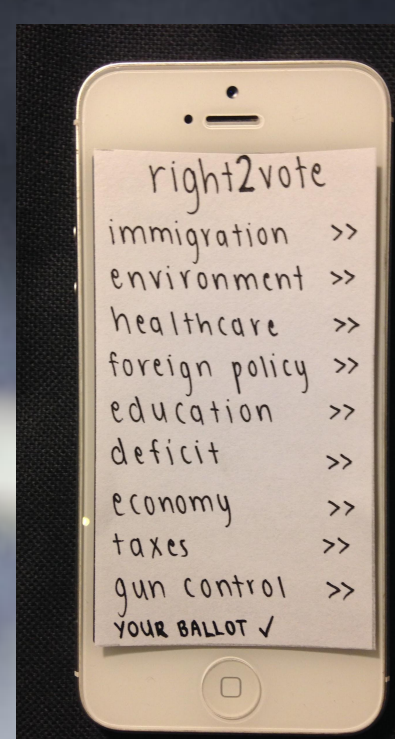 right2vote
immigration >>
environment >>
healthcare >>
foreign policy >>
education >>
deficit >>
economy >>
taxes >>
gun control >>
YOUR BALLOT ✓